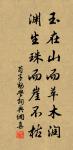 玉在山而草木润
渊生珠而崖不枯
荀子劝学赏析佩集